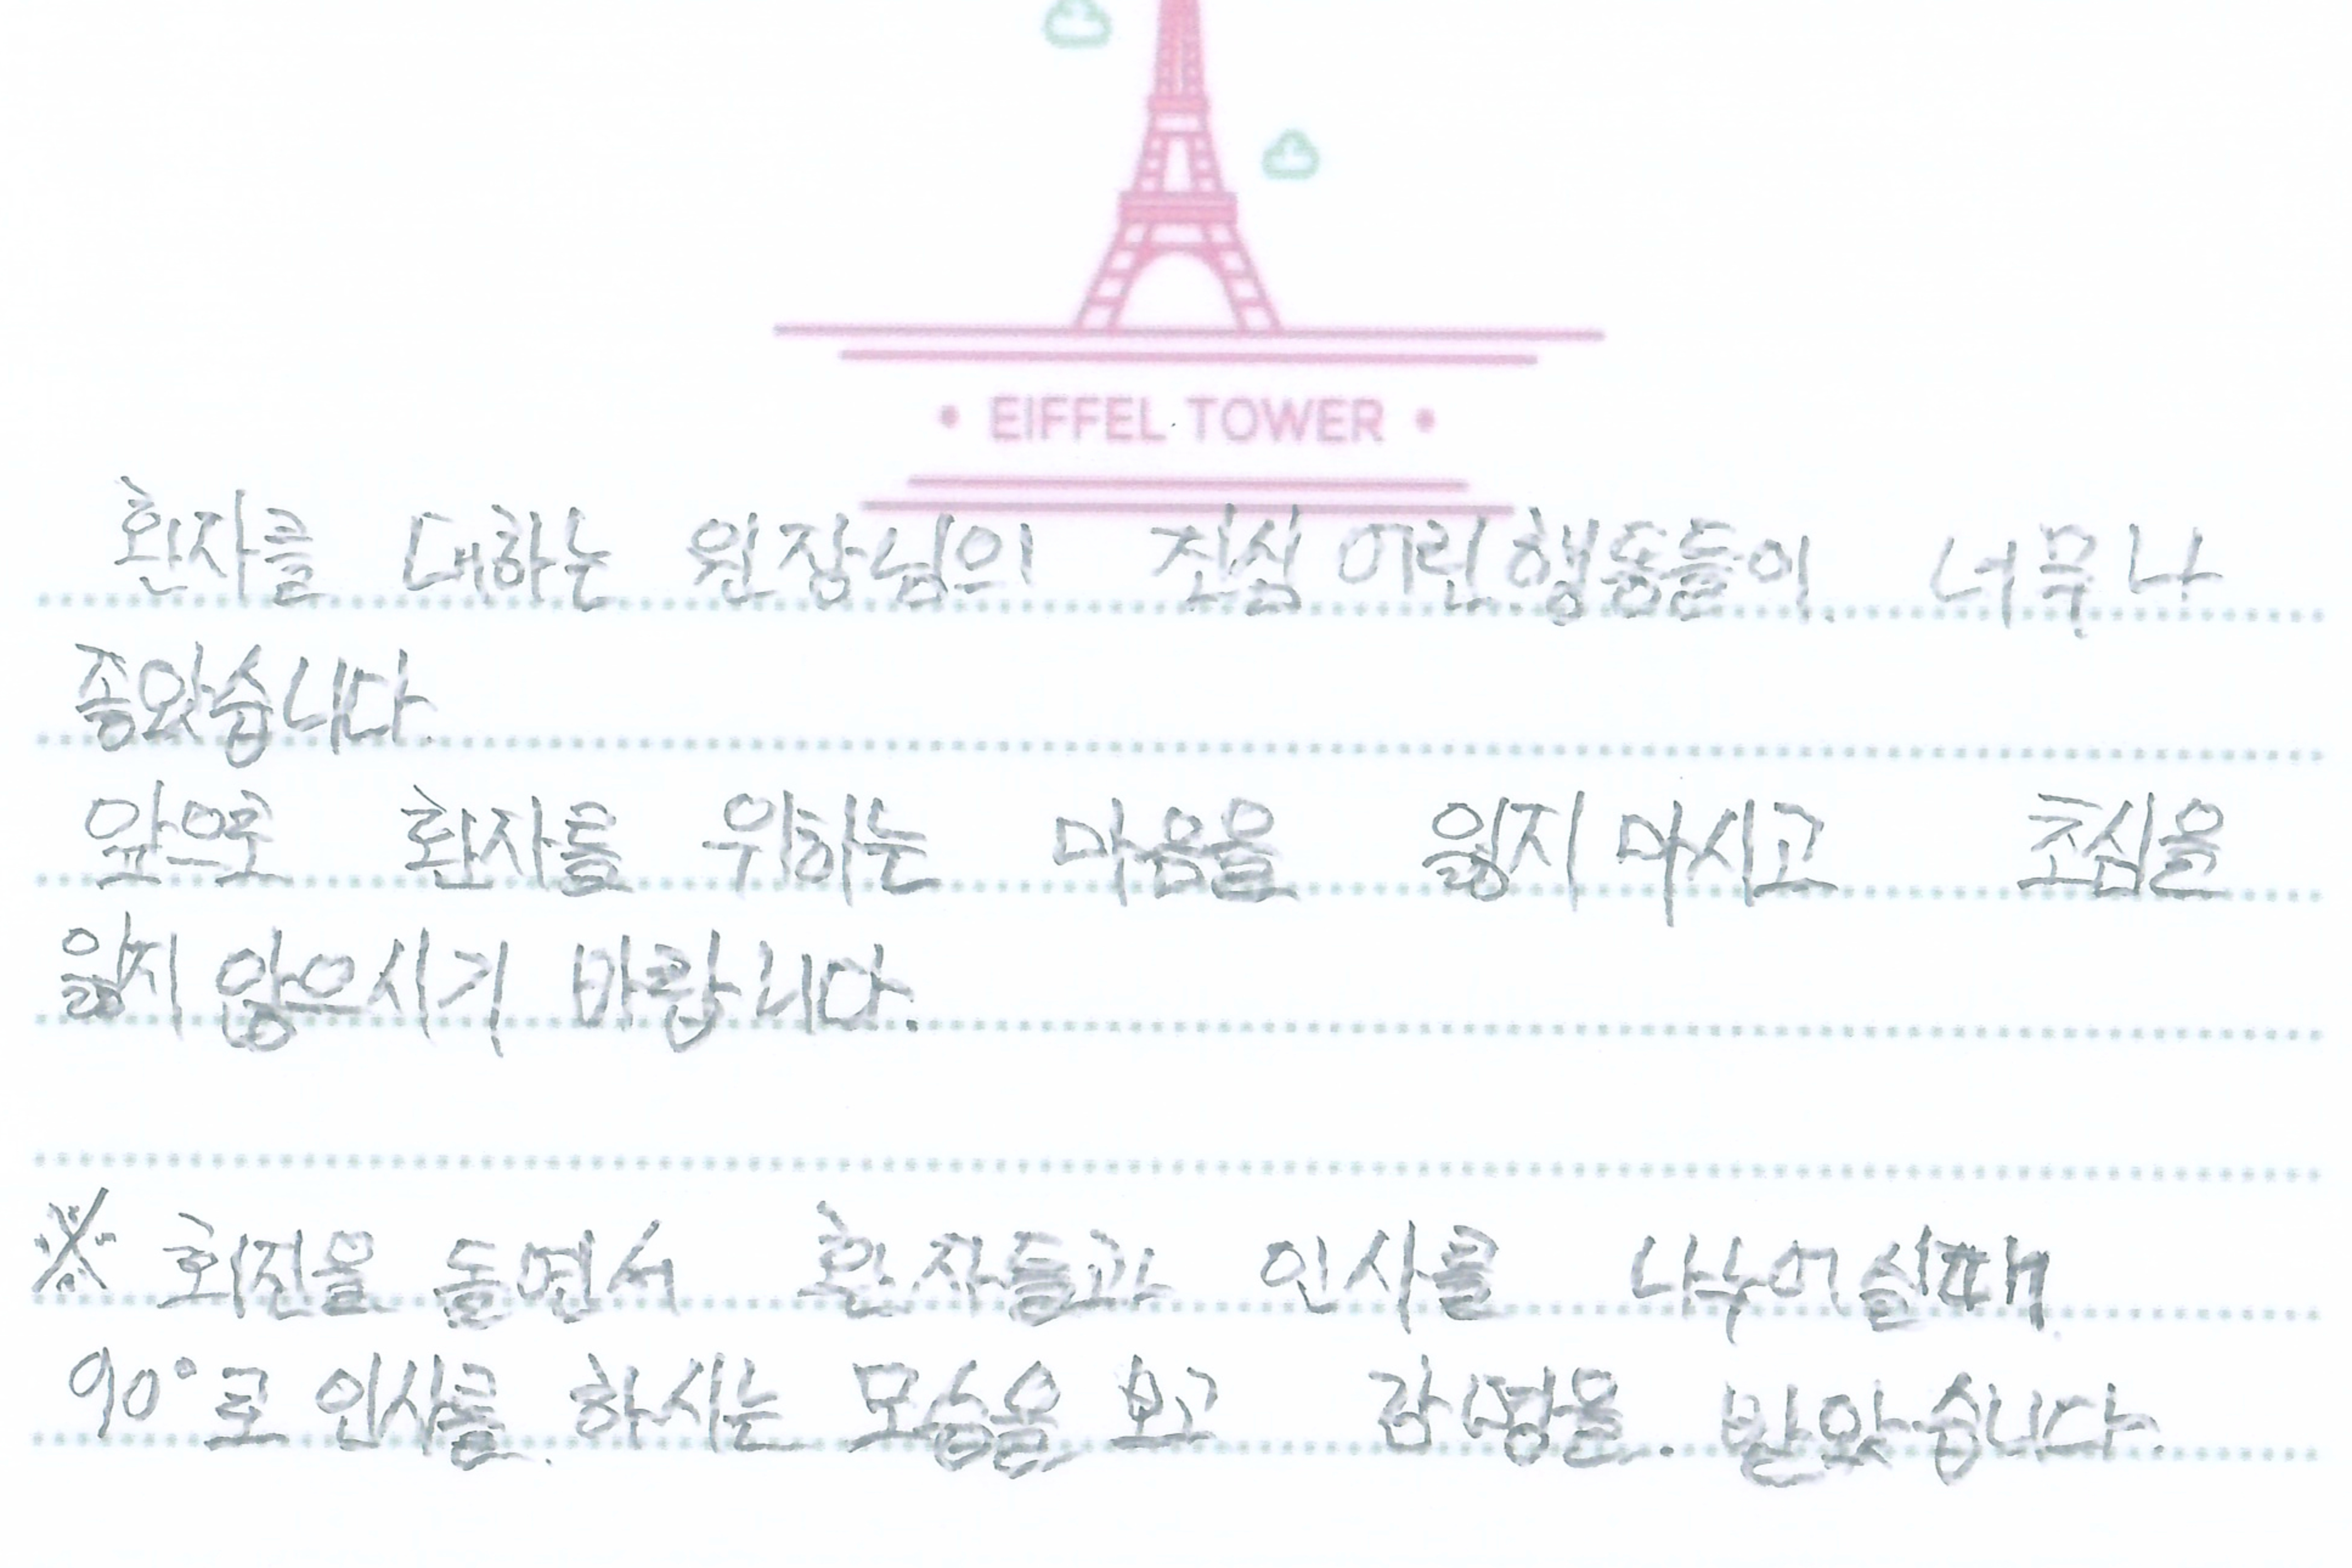 • EIFFEL TOWER •
환자를 대하는 원장님의 진심 어린 행동들이 너무나
좋았습니다.
앞으로 환자를 위하는 마음을 잃지 마시고 초심을
잃지 않으시기 바랍니다.
※ 회진을 돌면서 환자들과 인사를 나누어 실때
90°로 인사를 하시는 모습을 보고 감명을 받았습니다.